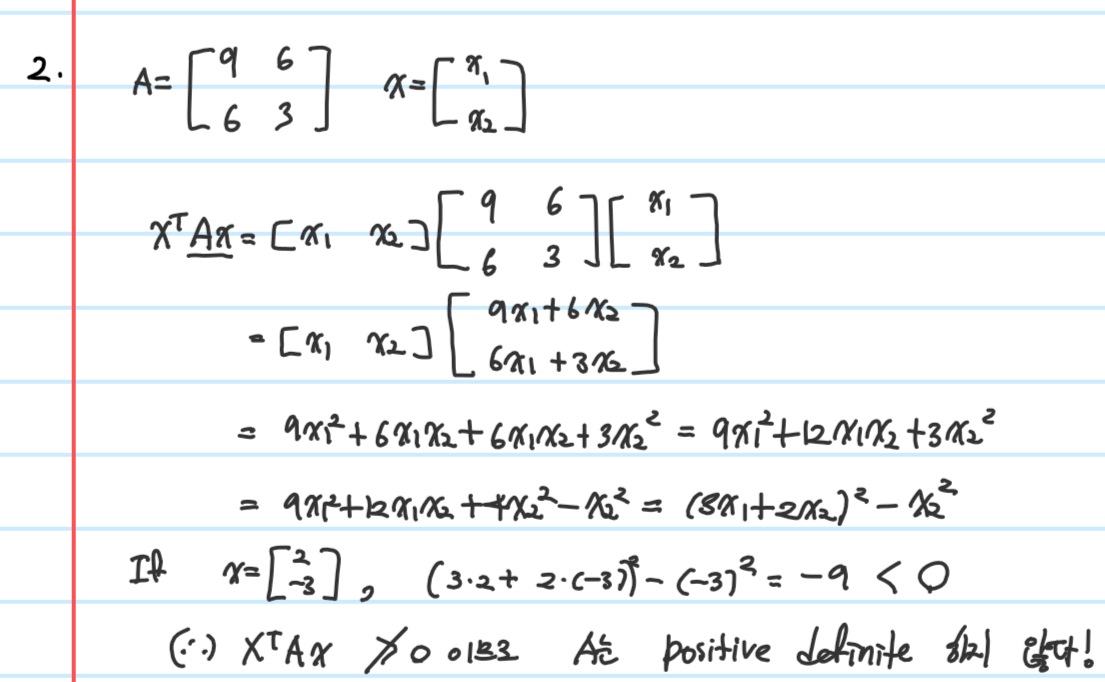 2. A = [9 6; 6 3] x = [x₁; x₂]
xᵀAx = [x₁ x₂][9 6; 6 3][x₁; x₂]
= [x₁ x₂][9x₁+6x₂; 6x₁+3x₂]
= 9x₁²+6x₁x₂+6x₁x₂+3x₂² = 9x₁²+12x₁x₂+3x₂²
= 9x₁²+12x₁x₂+4x₂²-x₂² = (3x₁+2x₂)²-x₂²
If x = [2; -3], (3·2+2·(-3))²-(-3)² = -9 < 0
(∴) xᵀAx ≯ 0 이므로 A는 positive definite 하지 않다!